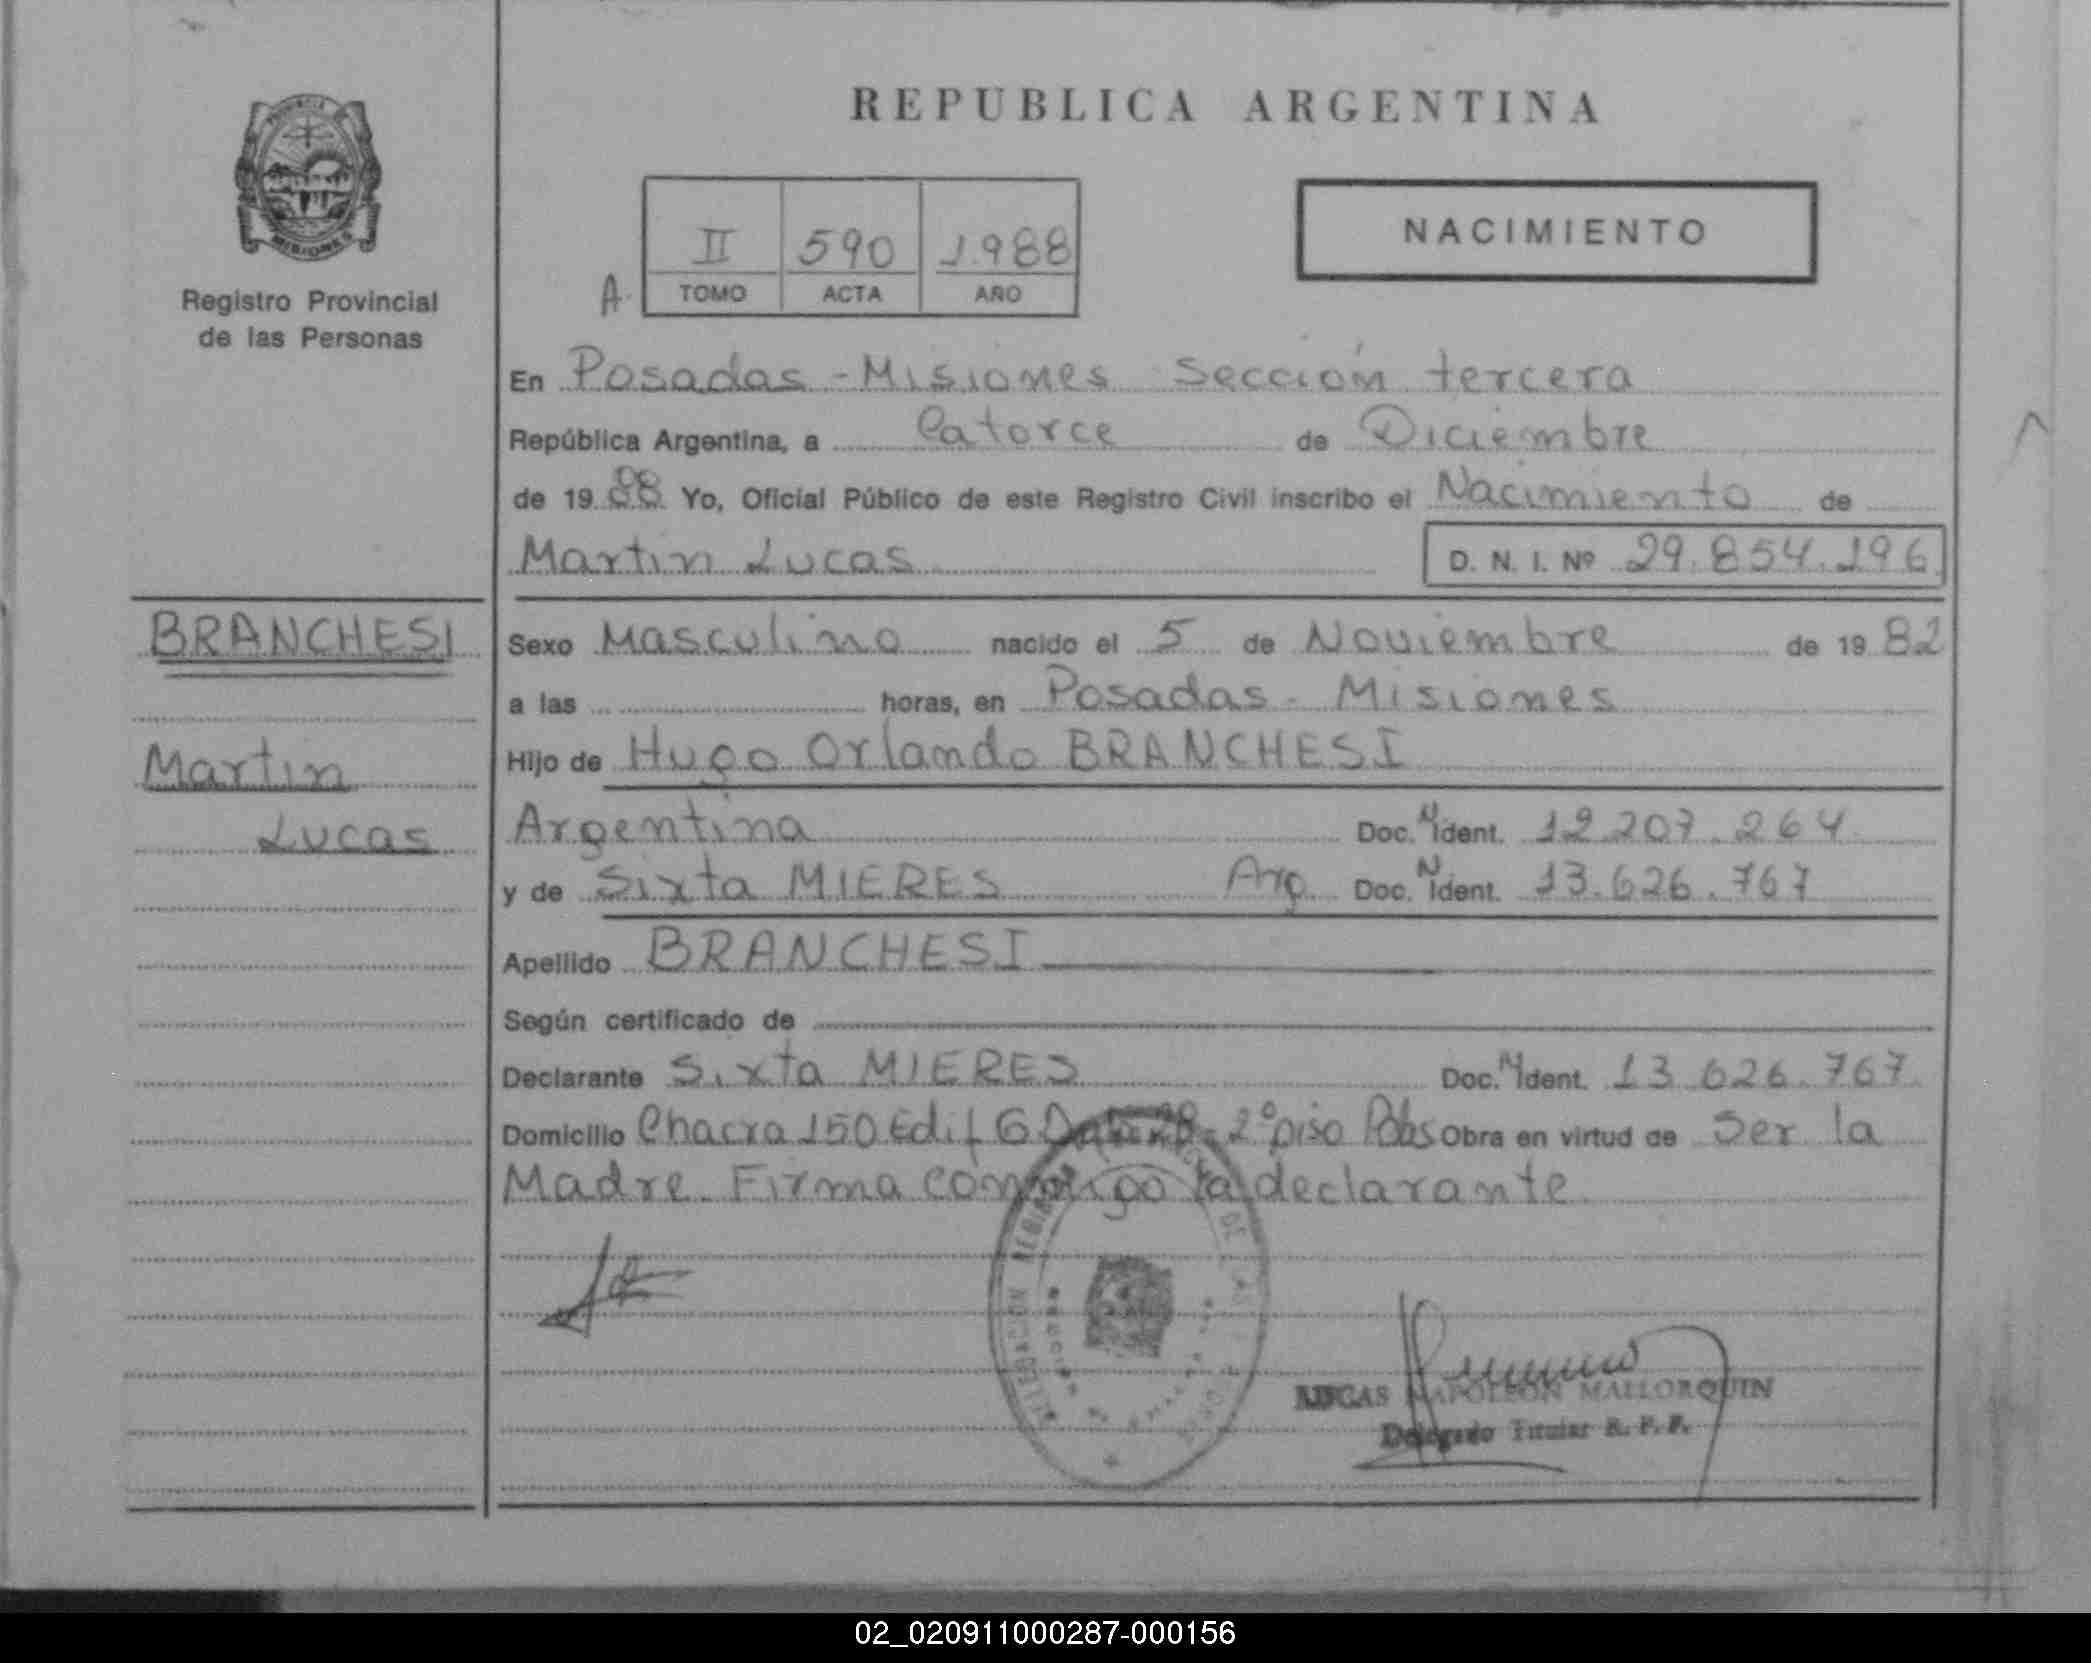 REPUBLICA ARGENTINA
PROVINCIA
MISIONES
Registro Provincial
de las Personas
II 590 1988
A. TOMO ACTA AÑO
NACIMIENTO
En Posadas - Misiones Sección tercera
República Argentina, a Catorce de Diciembre
de 19 88 Yo, Oficial Público de este Registro Civil inscribo el Nacimiento de
Martin Lucas D. N. I. Nº 29.854.196
BRANCHESI
Martin
Lucas
Sexo Masculino nacido el 5 de Noviembre de 19 82
a las horas, en Posadas - Misiones
Hijo de Hugo Orlando BRANCHESI
Argentina Doc. N Ident. 12.207.264
y de Sixta MIERES Arg. Doc. N Ident. 13.626.767
Apellido BRANCHESI
Según certificado de
Declarante Sixta MIERES Doc. N Ident. 13.626.767
Domicilio Chacra 150 Edif 6 2º piso Pdas Obra en virtud de Ser la
Madre. Firma conmigo la declarante
LUCAS NAPOLEON MALLORQUIN
Delegado Titular R. P. P.
02_020911000287-000156